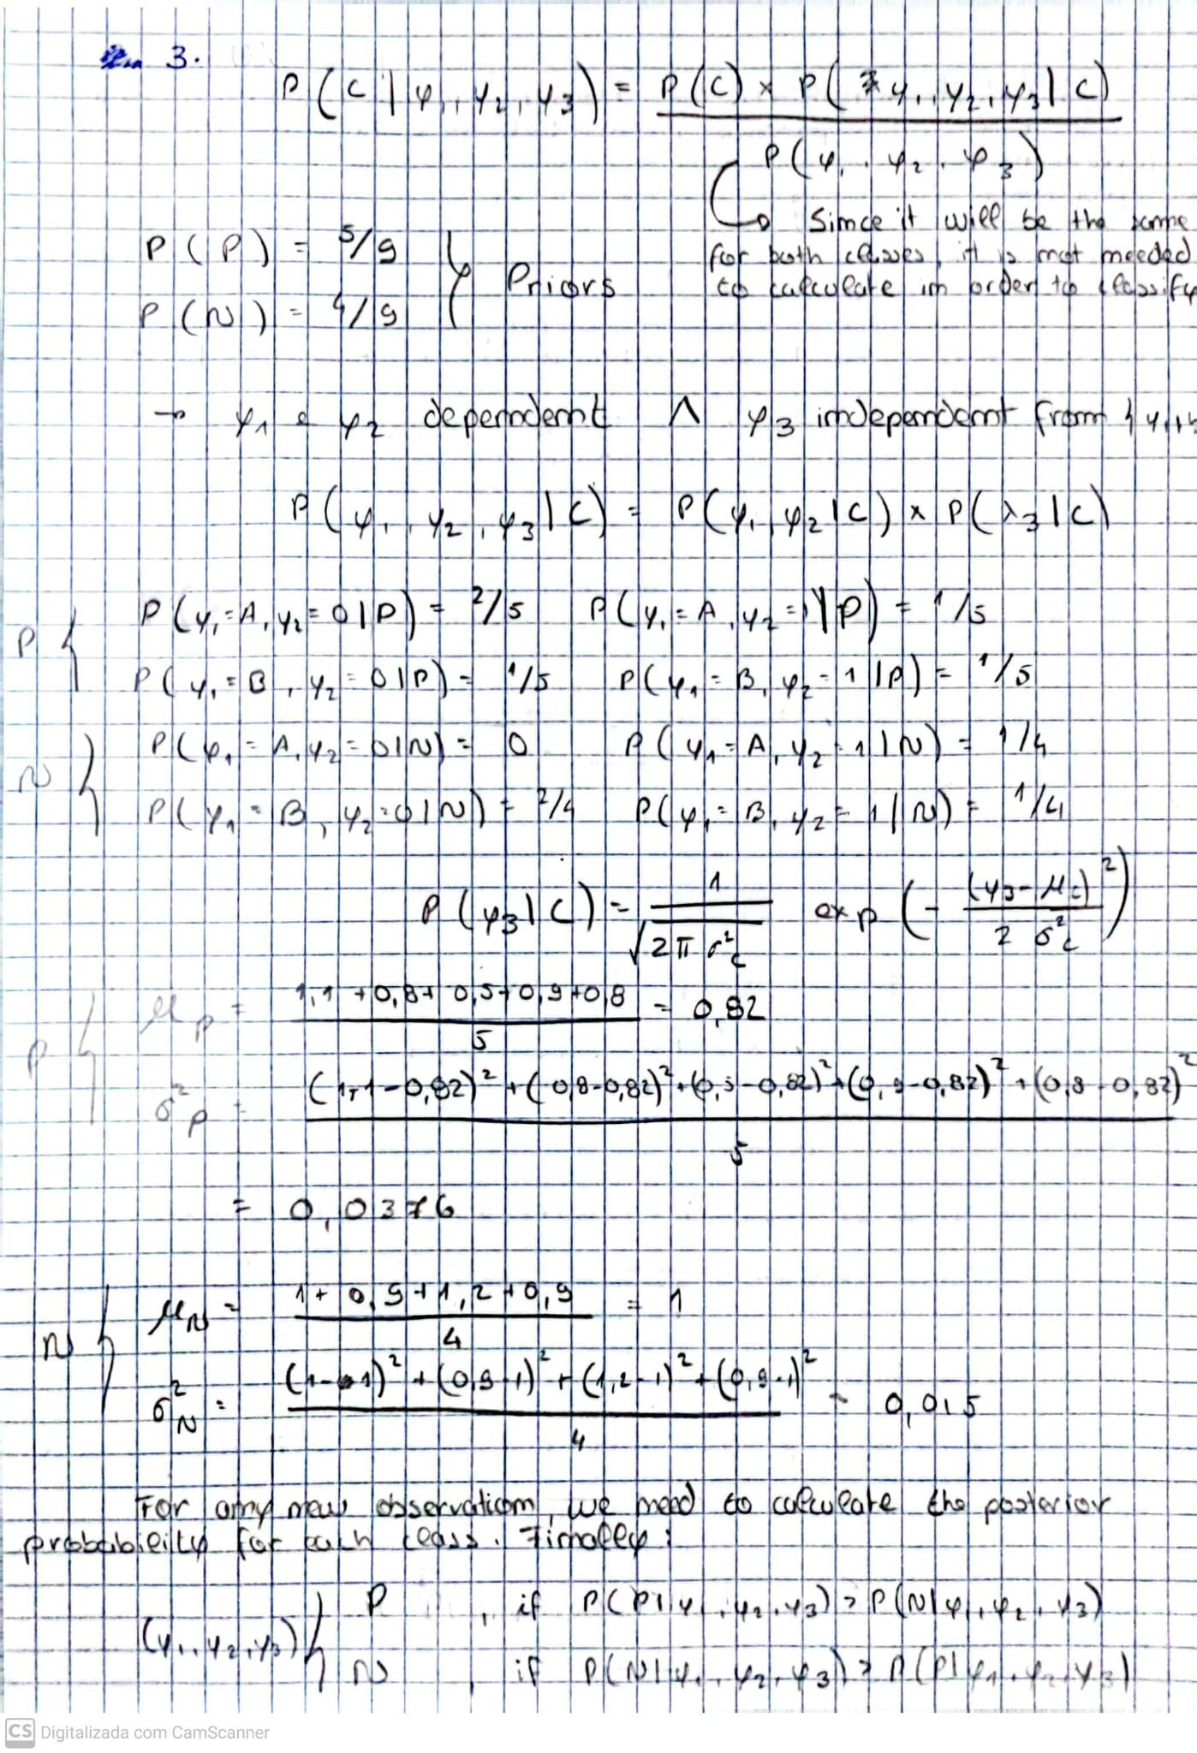 3.
P(C|y₁, y₂, y₃) = P(C) × P(y₁, y₂, y₃|C)
P(y₁, y₂, y₃)
Since it will be the same
for both classes, it is not needed
to calculate in order to classify
P(P) = 5/9
P(N) = 4/9
Priors
→ y₁ e y₂ dependent ∧ y₃ independent from {y₁, y
P(y₁, y₂, y₃|C) = P(y₁, y₂|C) × P(λ₃|C)
P { P(y₁=A, y₂=0|P) = 2/5 P(y₁=A, y₂=1|P) = 1/5
P(y₁=B, y₂=0|P) = 1/5 P(y₁=B, y₂=1|P) = 1/5
N { P(y₁=A, y₂=0|N) = 0 P(y₁=A, y₂=1|N) = 1/4
P(y₁=B, y₂=0|N) = 2/4 P(y₁=B, y₂=1|N) = 1/4
P(y₃|C) = 1/√(2πσ²c) exp(-(y₃-μc)²/(2σ²c))
P { μp = (1,1+0,8+0,5+0,9+0,8)/5 = 0,82
σ²p = ((1,1-0,82)²+(0,8-0,82)²+(0,5-0,82)²+(0,9-0,82)²+(0,8-0,82)²)/5
= 0,0376
N { μN = (1+0,9+1,2+0,9)/4 = 1
σ²N = ((1-1)²+(0,9-1)²+(1,2-1)²+(0,9-1)²)/4 = 0,015
For any new observation, we need to calculate the posterior
probability for each class. Finally:
(y₁, y₂, y₃) { P , if P(P|y₁, y₂, y₃) > P(N|y₁, y₂, y₃)
N , if P(N|y₁, y₂, y₃) > P(P|y₁, y₂, y₃)
CS Digitalizada com CamScanner